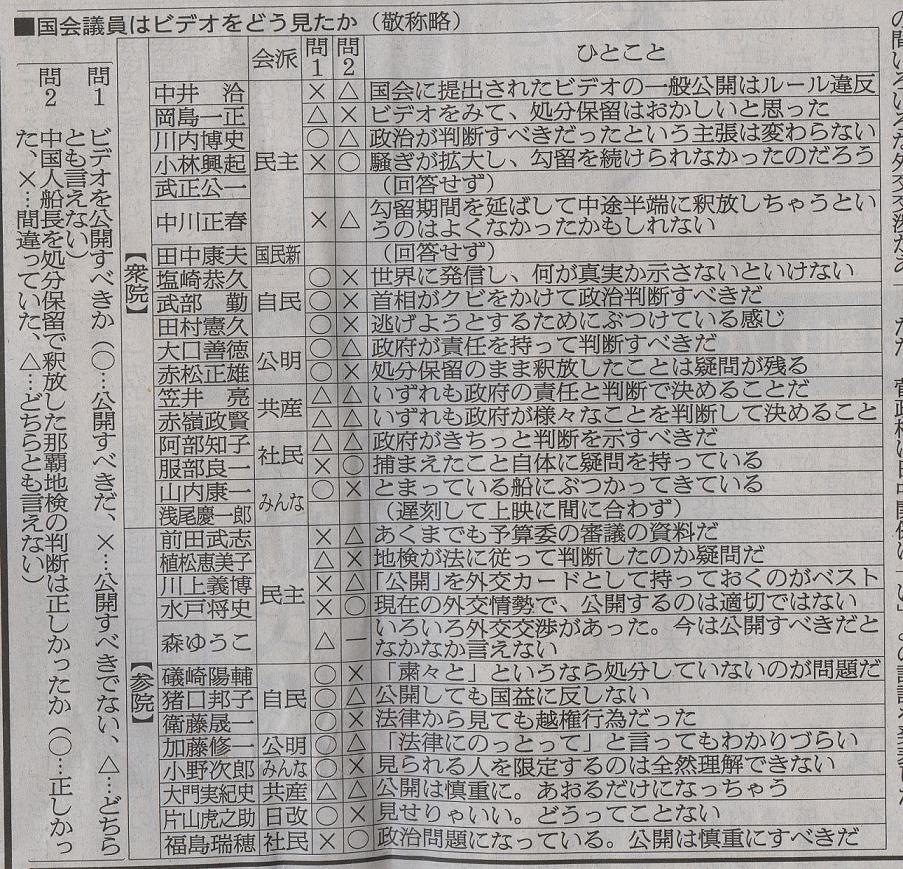 ■国会議員はビデオをどう見たか（敬称略）
会派 問1 問2 ひとこと
問1 ビデオを公開すべきか（○…公開すべきだ、×…公開すべきでない、△…どちら
とも言えない）
問2 中国人船長を処分保留で釈放した那覇地検の判断は正しかったか（○…正しかっ
た、×…間違っていた、△…どちらとも言えない）
【衆院】
中井　洽 民主 × △ 国会に提出されたビデオの一般公開はルール違反
岡島一正 △ × ビデオをみて、処分保留はおかしいと思った
川内博史 ○ △ 政治が判断すべきだったという主張は変わらない
小林興起 × ○ 騒ぎが拡大し、勾留を続けられなかったのだろう
武正公一 （回答せず）
中川正春 × △ 勾留期間を延ばして中途半端に釈放しちゃうとい
うのはよくなかったかもしれない
田中康夫 国民新 （回答せず）
塩崎恭久 自民 ○ × 世界に発信し、何が真実か示さないといけない
武部　勤 ○ × 首相がクビをかけて政治判断すべきだ
田村憲久 ○ × 逃げようとするためにぶつけている感じ
大口善徳 公明 ○ △ 政府が責任を持って判断すべきだ
赤松正雄 ○ × 処分保留のまま釈放したことは疑問が残る
笠井　亮 共産 △ △ いずれも政府の責任と判断で決めることだ
赤嶺政賢 △ △ いずれも政府が様々なことを判断して決めること
阿部知子 社民 △ △ 政府がきちっと判断を示すべきだ
服部良一 × ○ 捕まえたこと自体に疑問を持っている
山内康一 みんな ○ × とまっている船にぶつかってきている
浅尾慶一郎 （遅刻して上映に間に合わず）
【参院】
前田武志 民主 × △ あくまでも予算委の審議の資料だ
植松恵美子 △ × 地検が法に従って判断したのか疑問だ
川上義博 × △ 「公開」を外交カードとして持っておくのがベスト
水戸将史 × ○ 現在の外交情勢で、公開するのは適切ではない
森ゆうこ △ ― いろいろ外交交渉があった。今は公開すべきだと
なかなか言えない
礒崎陽輔 自民 ○ × 「粛々と」というなら処分していないのが問題だ
猪口邦子 ○ △ 公開しても国益に反しない
衛藤晟一 ○ × 法律から見ても越権行為だった
加藤修一 公明 ○ △ 「法律にのっとって」と言ってもわかりづらい
小野次郎 みんな ○ × 見られる人を限定するのは全然理解できない
大門実紀史 共産 △ △ 公開は慎重に。あおるだけになっちゃう
片山虎之助 日改 ○ × 見せりゃいい。どうってことない
福島瑞穂 社民 × ○ 政治問題になっている。公開は慎重にすべきだ